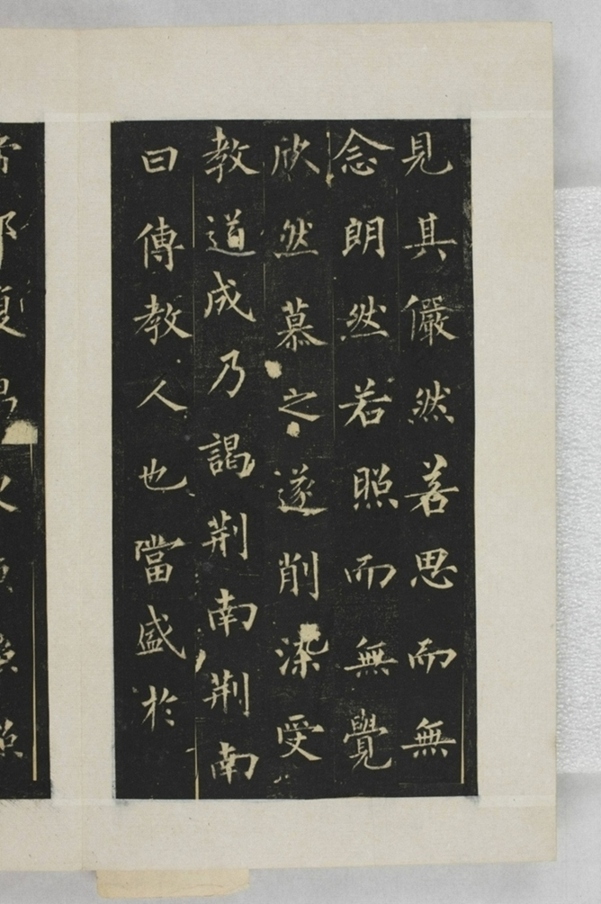 見其儼然若思而無
念朗然若照而無覺
欣然慕之遂削染受
教道成乃謁荆南荆南
曰傳教人也當盛於